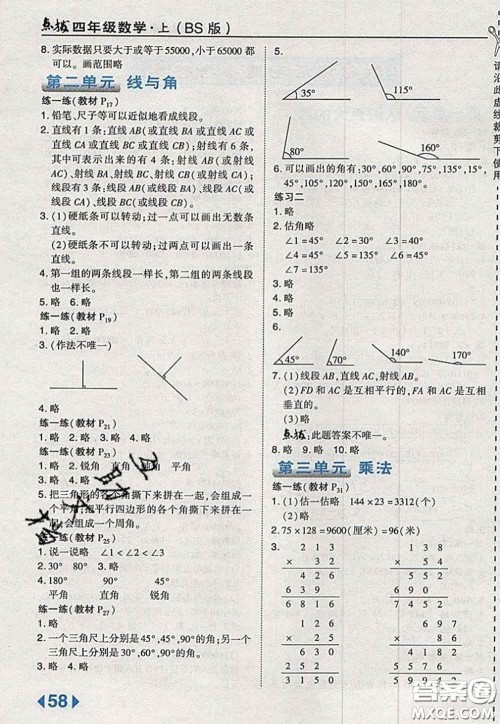 点拨 四年级数学·上(BS版)
8. 实际数据只要大于或等于55000,小于65000都
可以。画范围略
第二单元 线与角
练一练(教材 P17)
1. 铅笔、尺子等可以近似地看成线段。
2. 直线有1条;直线AB(或直线BA或直线AC或
直线CA或直线BC或直线CB);射线有6条,
其中可表示出来的有4条;射线AB(或射线
AC)、射线BA、射线BC、射线CB(或射线CA);
线段有3条:线段AB(或线段BA)、线段AC(或
线段CA)、线段BC(或线段CB)。
3. (1)硬纸条可以转动;过一点可以画出无数条
直线。
(2)硬纸条不可以转动;过两点可以画出一条
直线。
4. 第一组的两条线段一样长,第二组的两条线段
也一样长。
5. 略 6. 略
练一练(教材 P19)
1. 略 2. 略
3. (作法不唯一)
4. 略
练一练(教材 P21)
1. 略
2. 锐角 直角
3. 略 4. 略
练一练(教材 P23)
1. 略 2. 略 3. 锐角
4. 略
5. 把三角形的各个角撕下来拼在一起,可以组成一个
平角;把平行四边形的各个角撕下来拼在
一起,会组成一个周角。
练一练(教材 P25)
1. 说一说略 ∠1<∠2<∠3
2. 30° 80° 3. 略
4. 180° 90° 45°
平角 直角 锐角
练一练(教材 P27)
1. 略
2. 一个三角尺上分别是45°,45°,90°的角;另一个
三角尺上分别是30°,60°,90°的角。
3. 略 4. 略
58
5.
35° 115°
80° 160°
6. 可以画出的角有:30°,60°,90°,75°,135°,15°,
45°,105°,120°,150°,165°,180°。
练习二
1. 略
2. 估角略
∠1=45° ∠2=60° ∠3=120°
∠4=45° ∠5=135° ∠6=45°
∠7=135°
3. 略
4. 略
5. 略
6.
45° 70° 140° 170°
7. (1)线段AB,直线AC,射线BC。
(2)FD和AC是互相平行的,FA和AC是互相
垂直的。
点拨:此题答案不唯一。
8. 略 9. 略 10. 略
第三单元 乘法
练一练(教材 P31)
1. (1)估一估略 144×23=3312(个)
(2)略
2. 75×128=9600(厘米)=96(米)
3.
2 1 3 3 1 2
× 3 2 × 5 4
4 2 6 1 2 4 8
6 3 9 1 5 6 0
6 8 1 6 1 6 8 4 8
答案圈
MXQE.COM